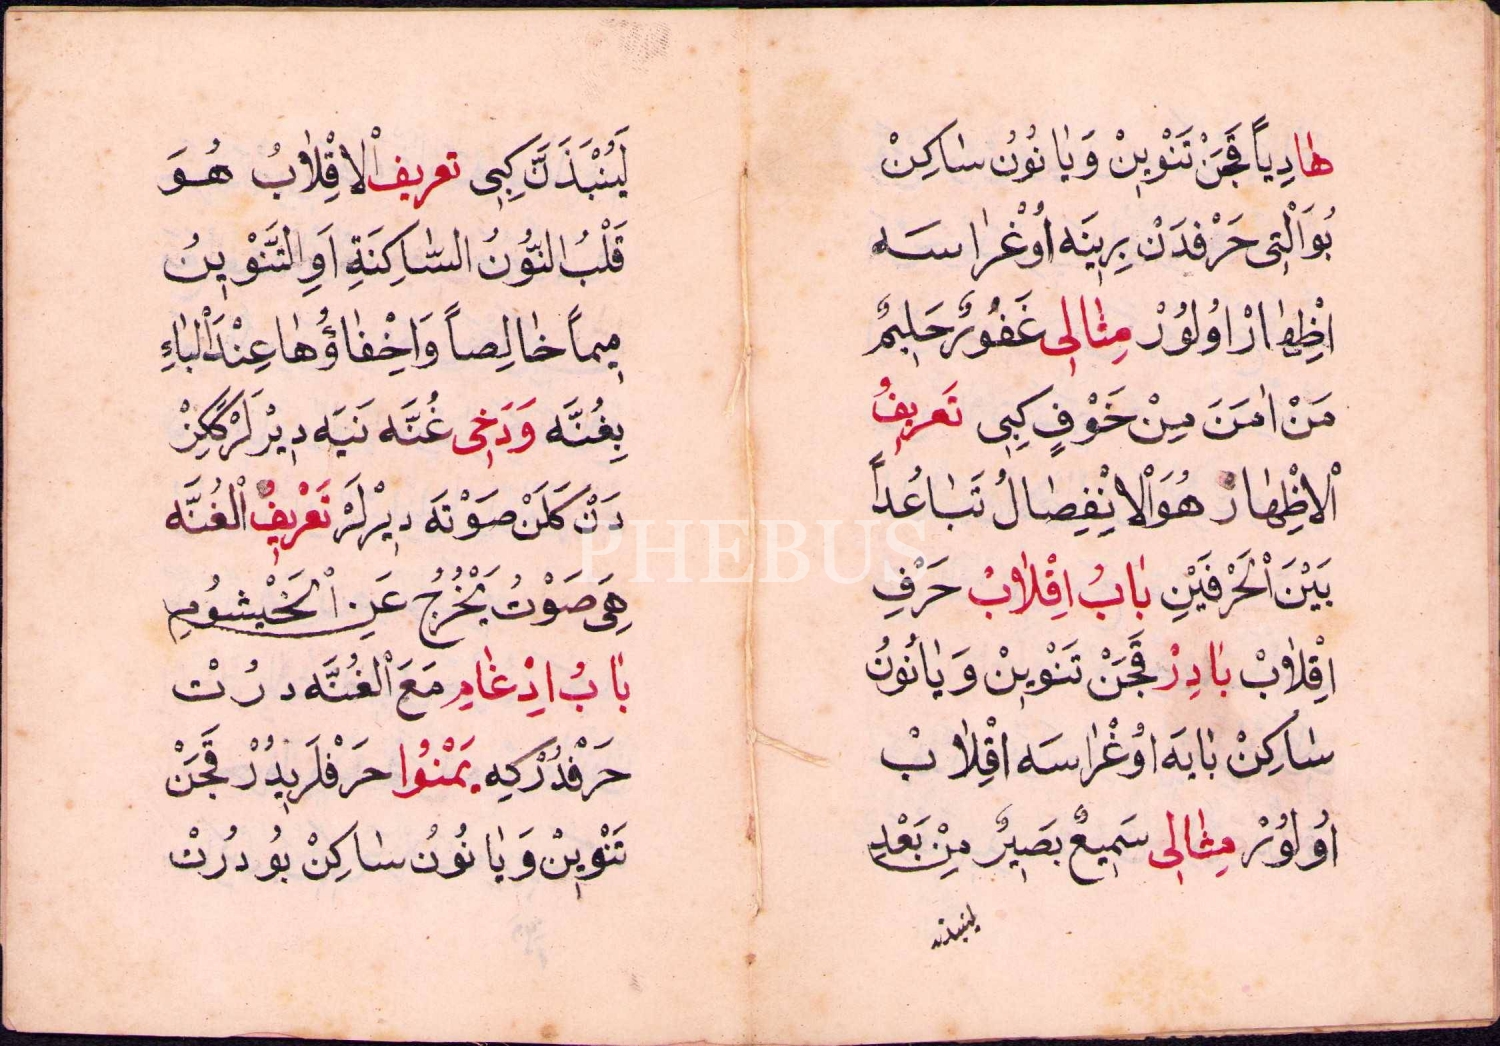 هَادِياً قَچَنْ تَنْوِينْ وَيَا نُونُ سَاكِنْ
بُو اَلْتِى حَرْفدَنْ بِرِينَه اُوغْرَاسَه
اِظْهَارْ اُولُورْ مِثَالِى غَفُورٌ حَلِيمٌ
مَنْ اٰمَنَ مِنْ خَوْفٍ كِبِى تَعرِيفُ
الْاِظْهَارْ هُوَ الْاِنْفِصَالُ تَبَاعُداً
بَيْنَ الْحَرْفَيْنِ بَابُ اِقْلَابْ حَرْفِ
اِقْلَابْ بَادِرْ قَچَنْ تَنْوِينْ وَيَا نُونُ
سَاكِنْ بَايَه اُوغْرَاسَه اِقْلَابْ
اُولُورْ مِثَالِى سَمِيعٌ بَصِيرٌ مِنْ بَعْدِ
لينبذن
لَيُنْبَذَنَّ كِبِى تعريف الْاِقْلَابُ هُوَ
قَلْبُ النُّونُ السَّاكِنَةِ اَوِ التَّنْوِينُ
مِيماً خَالِصاً وَاِخْفَاؤُهَا عِنْدَ الْبَاءِ
بِغُنَّه وَدَخِى غُنَّه نَيَه دِيرْلَرْ گَكِزْ
دَنْ كَلَنْ صَوْتَه دِيرْلَرْ تَعْرِيفُ الْغُنَّه
هِىَ صَوْتُ يَخْرُجُ عَنِ الْخَيْشُومِ
بَابُ اِدْغَامِ مَعَ الْغُنَّه دُرْتْ
حَرْفدُرْ كِه يَمْنُوا حَرْفلَرِيدُرْ قَچَنْ
تَنْوِينْ وَيَا نُونُ سَاكِنْ بُو دُرْتْ
PHEBUS